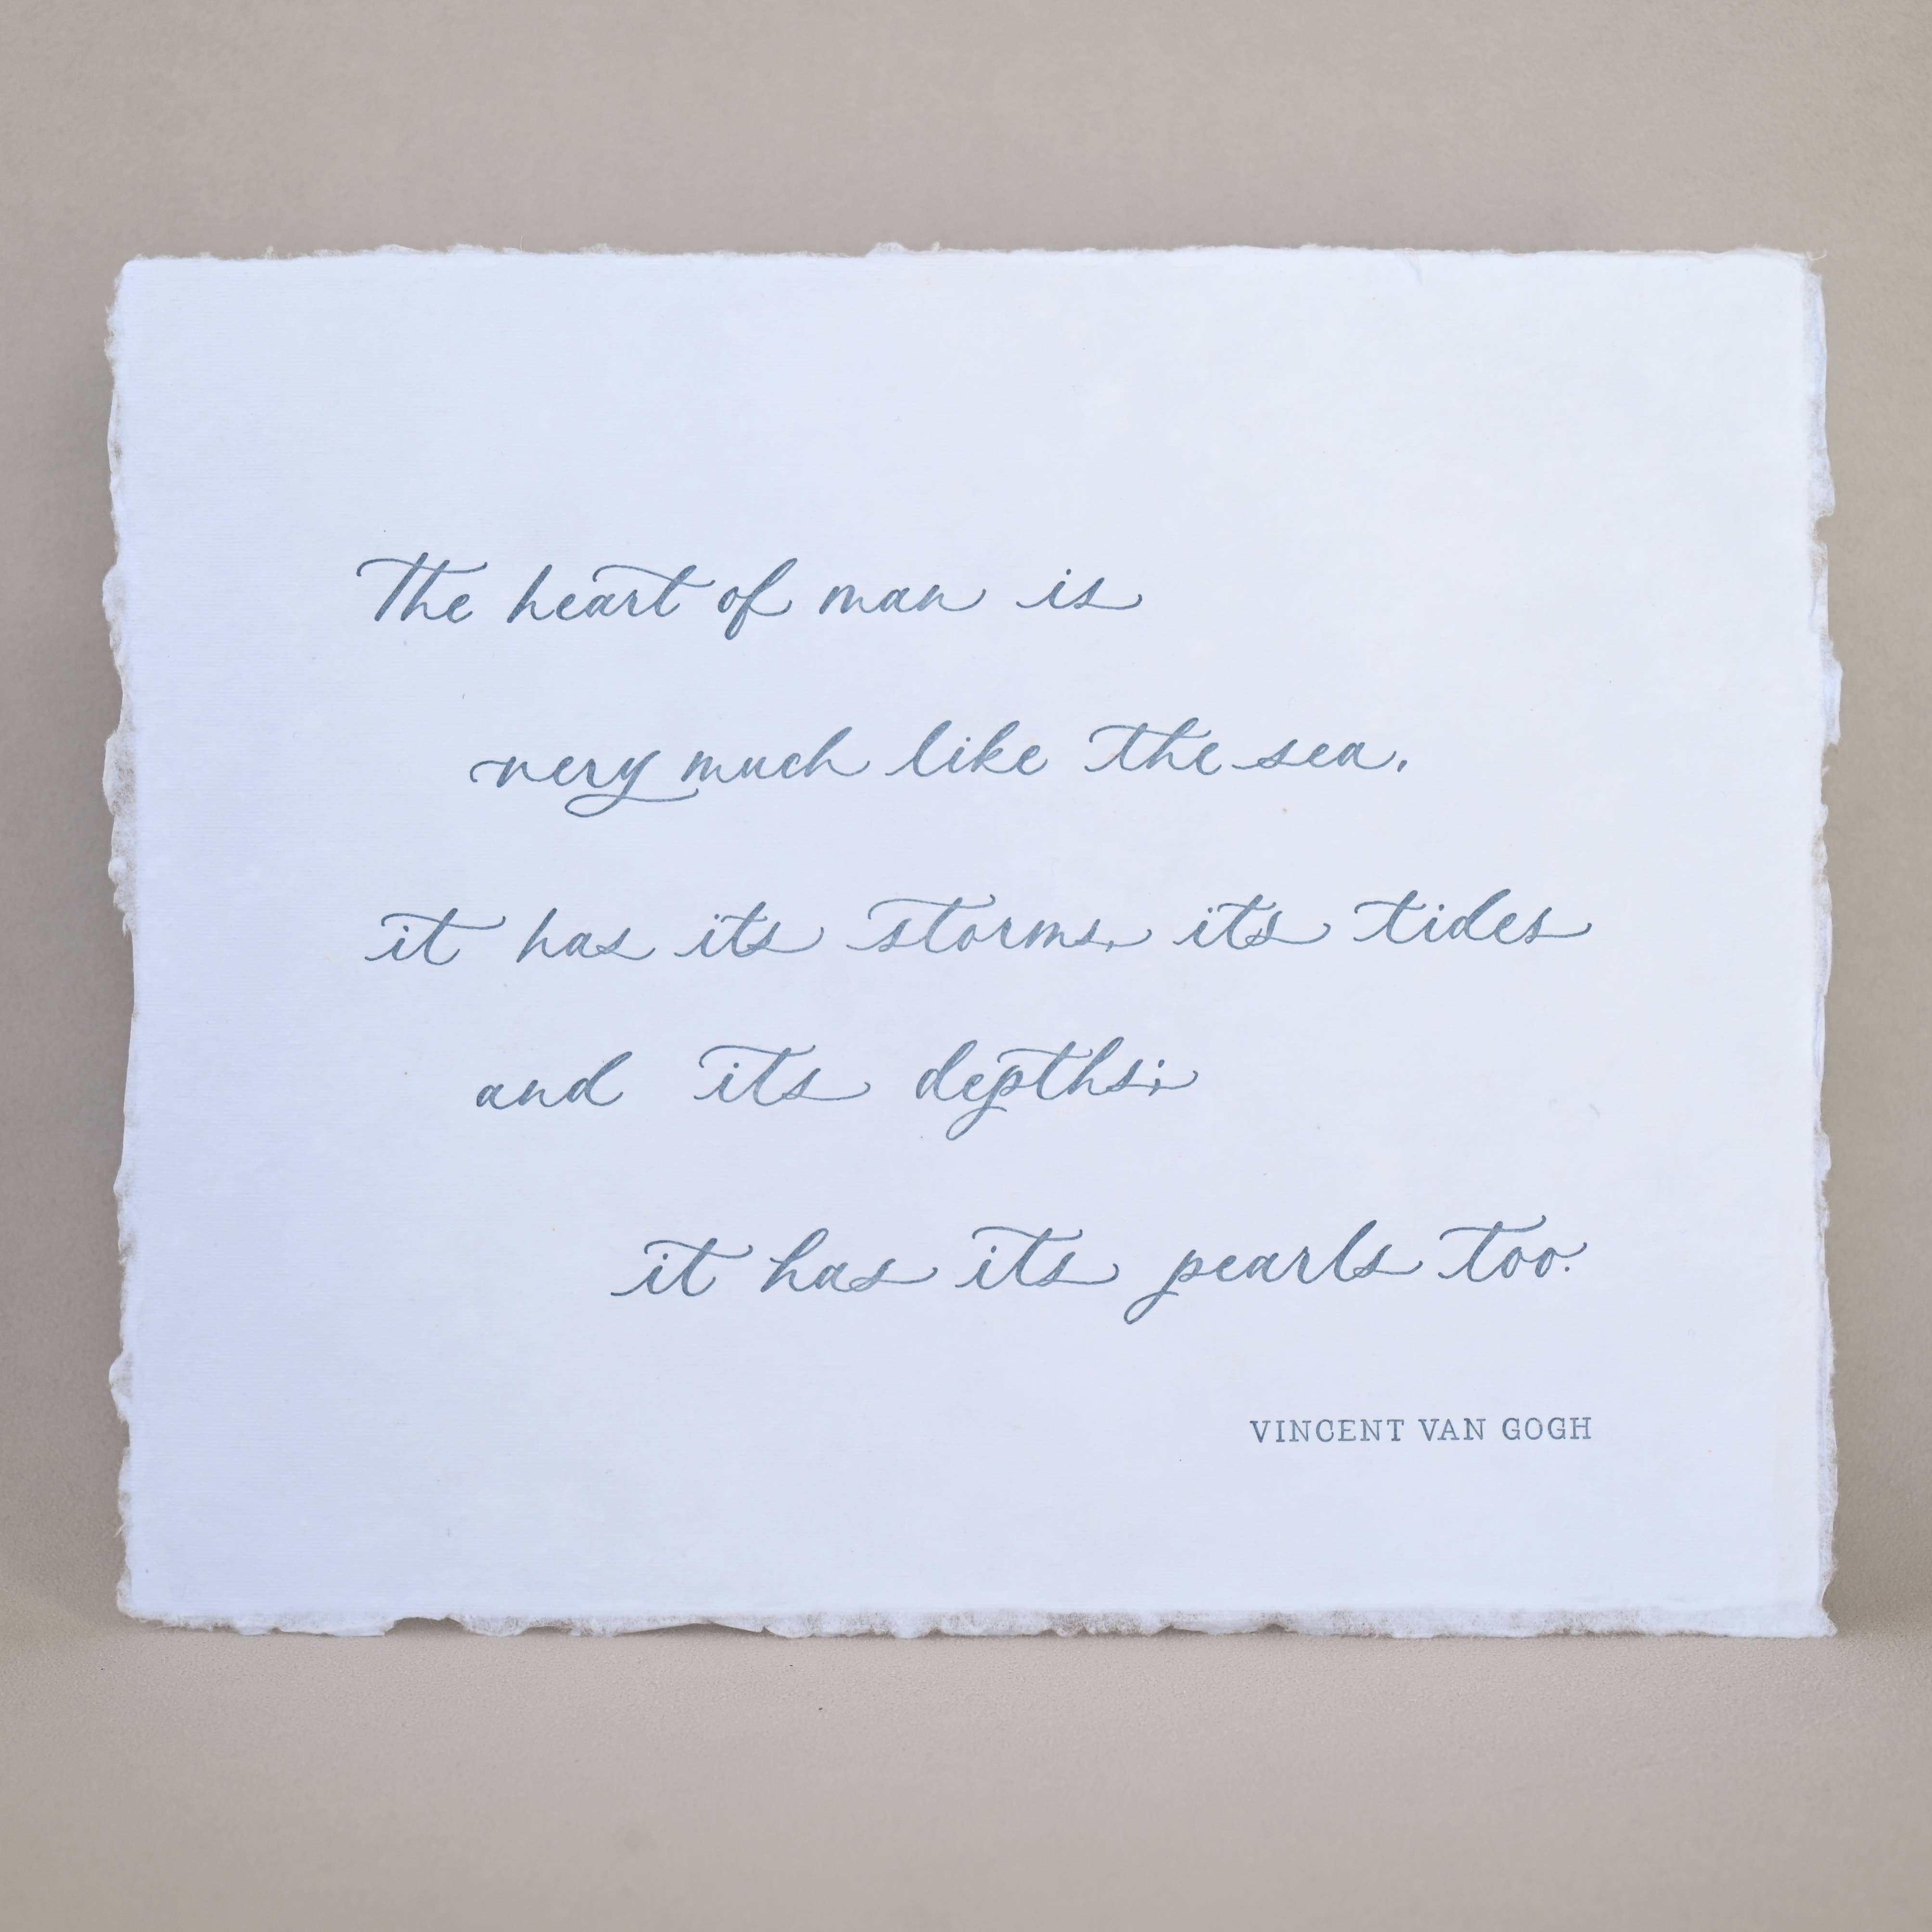 The heart of man is
very much like the sea,
it has its storms, its tides
and its depths;
it has its pearls too.
VINCENT VAN GOGH